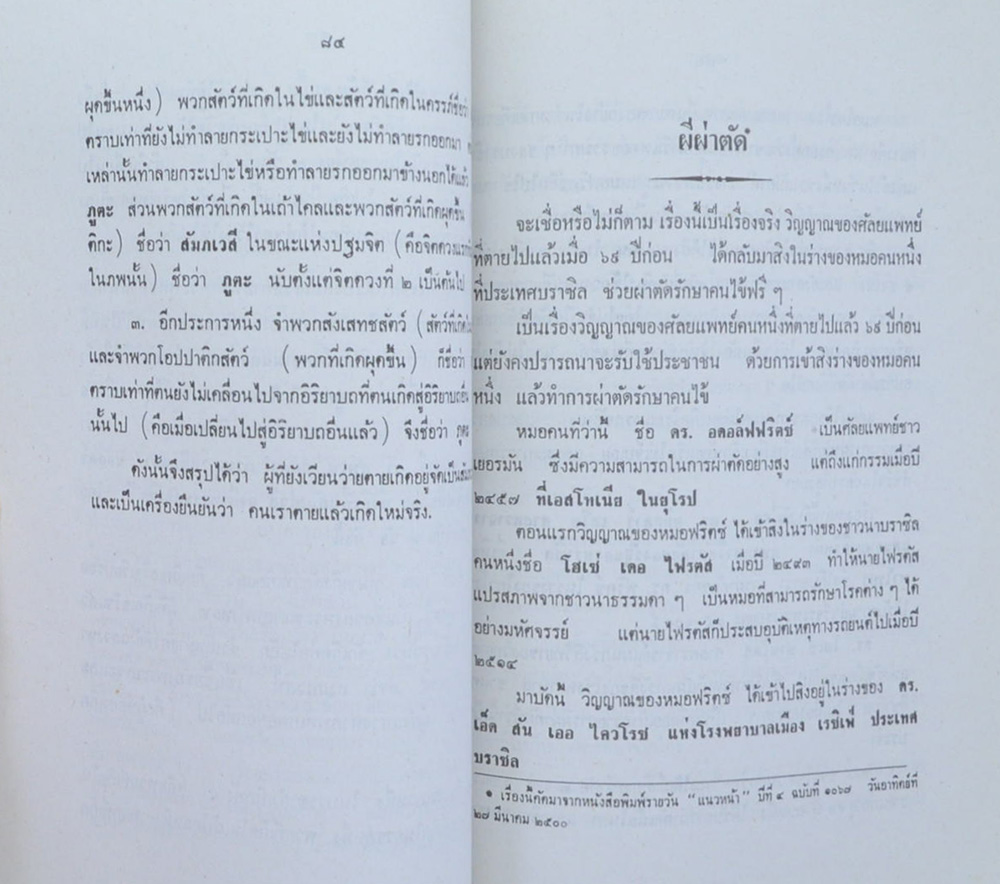 ๘๔
ผุดขึ้นหนึ่ง) พวกสัตว์ที่เกิดในไข่และสัตว์ที่เกิดในครรภ์ชื่อว่า
ตราบเท่าที่ยังไม่ทำลายกระเปาะไข่และยังไม่ทำลายรกออกมา
เหล่านั้นทำลายกระเปาะไข่หรือทำลายรกออกมาข้างนอกได้แล้ว
ภูตะ ส่วนพวกสัตว์ที่เกิดในเถ้าไคลและพวกสัตว์ที่เกิดผุดขึ้น
ติกะ) ชื่อว่า สัมภเวสี ในขณะแห่งปฐมจิต (คือจิตดวงแรก
ในภพนั้น) ชื่อว่า ภูตะ นับตั้งแต่จิตดวงที่ ๒ เป็นต้นไป
๓. อีกประการหนึ่ง จำพวกสังเสทชสัตว์ (สัตว์ที่เกิด
และจำพวกโอปปาติกสัตว์ (พวกที่เกิดผุดขึ้น) ก็ชื่อว่า
ตราบเท่าที่ตนยังไม่เคลื่อนไปจากอิริยาบถที่ตนเกิดสู่อิริยาบถอื่น
นั้นไป (คือเมื่อเปลี่ยนไปสู่อิริยาบถอื่นแล้ว) จึงชื่อว่า ภูตะ
ดังนั้นจึงสรุปได้ว่า ผู้ที่ยังเวียนว่ายตายเกิดอยู่จัดเป็น
และเป็นเครื่องยืนยันว่า คนเราตายแล้วเกิดใหม่จริง.
ผีผ่าตัด๑
จะเชื่อหรือไม่ก็ตาม เรื่องนี้เป็นเรื่องจริง วิญญาณของศัลยแพทย์
ที่ตายไปแล้วเมื่อ ๖๙ ปีก่อน ได้กลับมาสิงในร่างของหมอคนหนึ่ง
ที่ประเทศบราซิล ช่วยผ่าตัดรักษาคนไข้ฟรี ๆ
เป็นเรื่องวิญญาณของศัลยแพทย์คนหนึ่งที่ตายไปแล้ว ๖๙ ปีก่อน
แต่ยังคงปรารถนาจะรับใช้ประชาชน ด้วยการเข้าสิงร่างของหมอคน
หนึ่ง แล้วทำการผ่าตัดรักษาคนไข้
หมอคนที่ว่านี้ ชื่อ ดร. อดอล์ฟฟริตซ์ เป็นศัลยแพทย์ชาว
เยอรมัน ซึ่งมีความสามารถในการผ่าตัดอย่างสูง แต่ถึงแก่กรรมเมื่อปี
๒๔๕๗ ที่เอสโทเนีย ในยุโรป
ตอนแรกวิญญาณของหมอฟริตซ์ ได้เข้าสิงในร่างของชาวนาบราซิล
คนหนึ่งชื่อ โฮเซ่ เดอ ไฟรตัส เมื่อปี ๒๔๙๓ ทำให้นายไฟรตัส
แปรสภาพจากชาวนาธรรมดา ๆ เป็นหมอที่สามารถรักษาโรคต่าง ๆ ได้
อย่างมหัศจรรย์ แต่นายไฟรตัสก็ประสบอุบัติเหตุทางรถยนต์ไปเมื่อปี
๒๕๑๔
มาบัดนี้ วิญญาณของหมอฟริตซ์ ได้เข้าไปสิงอยู่ในร่างของ ดร.
เอ็ด สัน เออ ไควโรซ แห่งโรงพยาบาลเมือง เรซิเฟ่ ประเทศ
บราซิล
๑ เรื่องนี้คัดมาจากหนังสือพิมพ์รายวัน “แนวหน้า” ปีที่ ๔ ฉบับที่ ๑๐๖๗ วันอาทิตย์ที่
๒๗ มีนาคม ๒๕๐๐